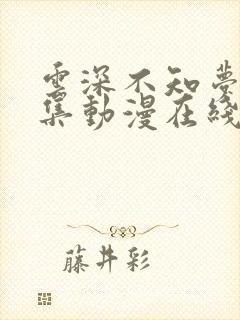 雲深不知夢
集動漫在綫
藤井彩